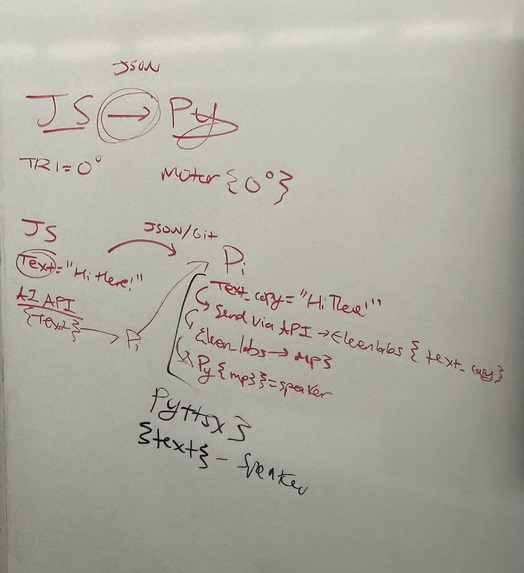 JSON
JS → Py
TR1=0° Motor {0°}
JS JSON/Git Pi
Text="Hi there!" Text_copy="Hi There!"
AI API Send via API → Elevenlabs {text_copy}
{Text} → Pi Eleven_labs → mp3
Py{mp3}=speaker
Pyttsx3
{text} - Speaker